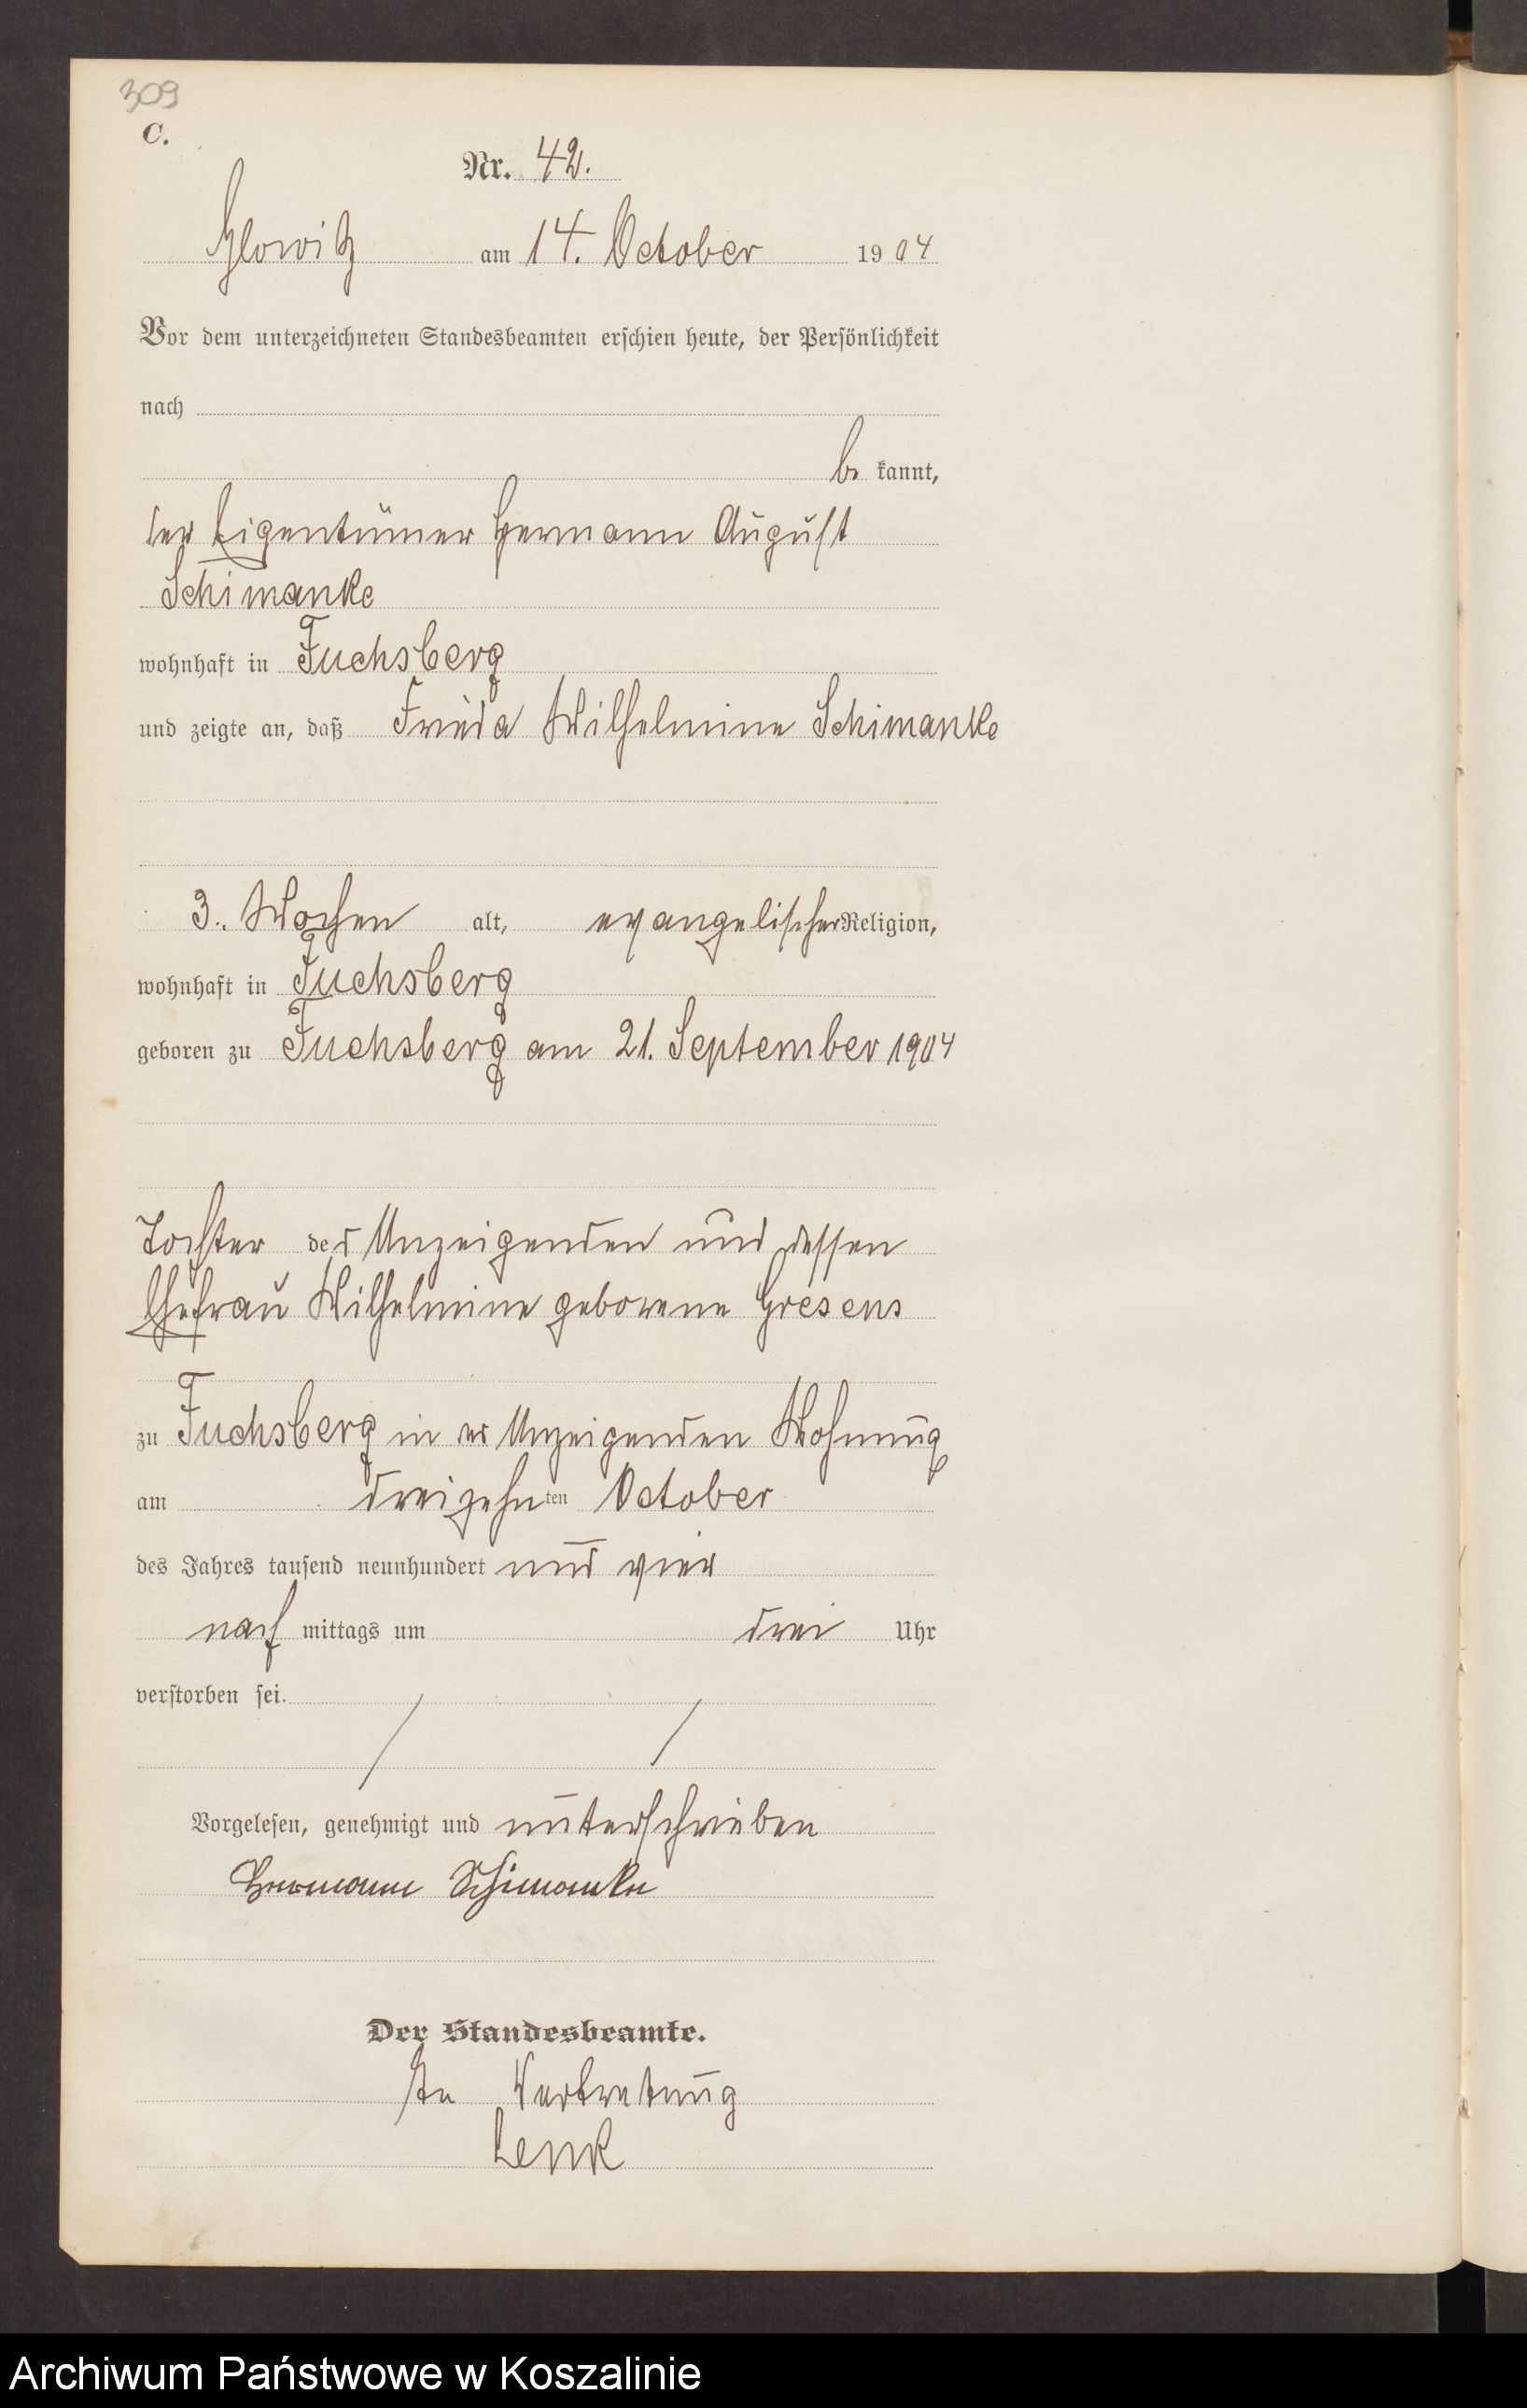 309
C.
Nr. 42.
Glowitz am 14. October 1904
Vor dem unterzeichneten Standesbeamten erschien heute, der Persönlichkeit
nach
be kannt,
der Eigentümer Hermann August
Schimanke
wohnhaft in Fuchsberg
und zeigte an, daß Frieda Wilhelmine Schimanke
3. Wochen alt, evangelischer Religion,
wohnhaft in Fuchsberg
geboren zu Fuchsberg am 21. September 1904
Tochter des Anzeigenden und dessen
Ehefrau Wilhelmine geborene Gresens
zu Fuchsberg in des Anzeigenden Wohnung
am dreizehnten October
des Jahres tausend neunhundert und vier
nach mittags um drei Uhr
verstorben sei.
Vorgelesen, genehmigt und unterschrieben
Hermann Schimanke
Der Standesbeamte.
In Vertretung
Lenk
Archiwum Państwowe w Koszalinie